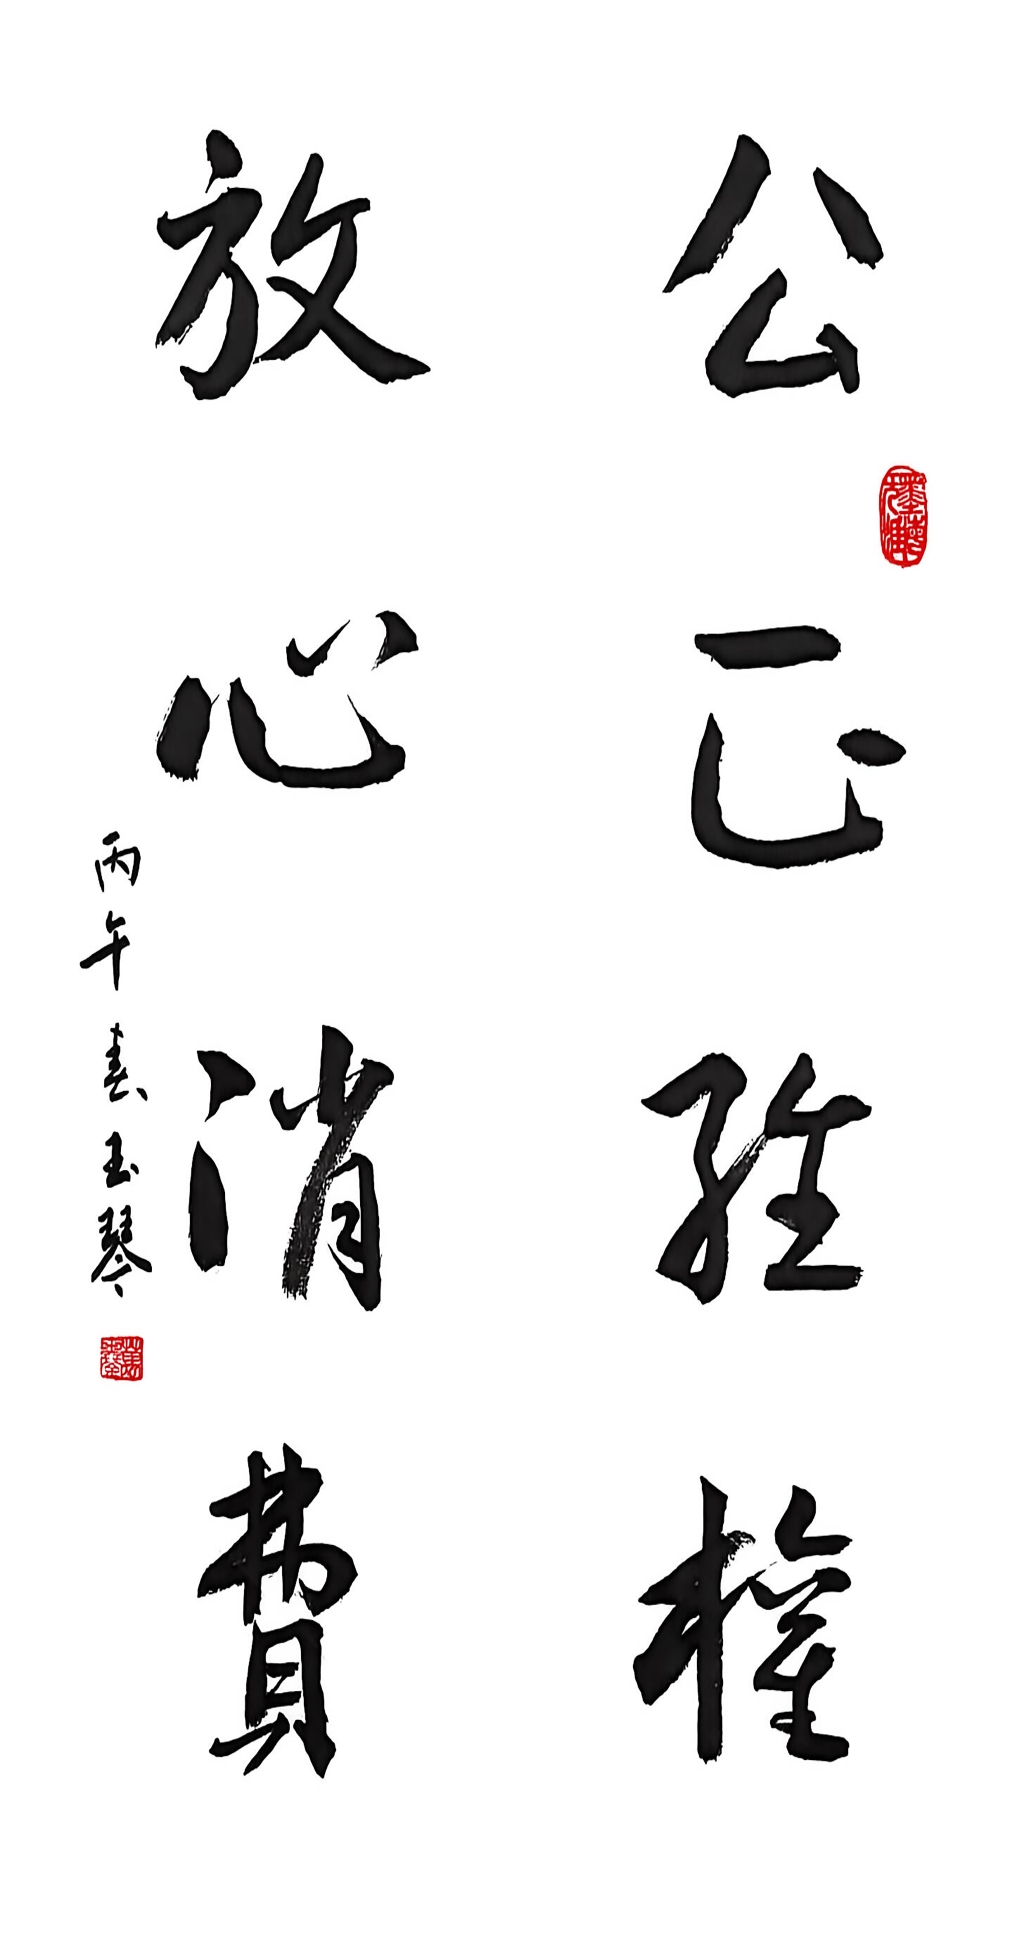 公正维權
放心消費
丙午春玉琴